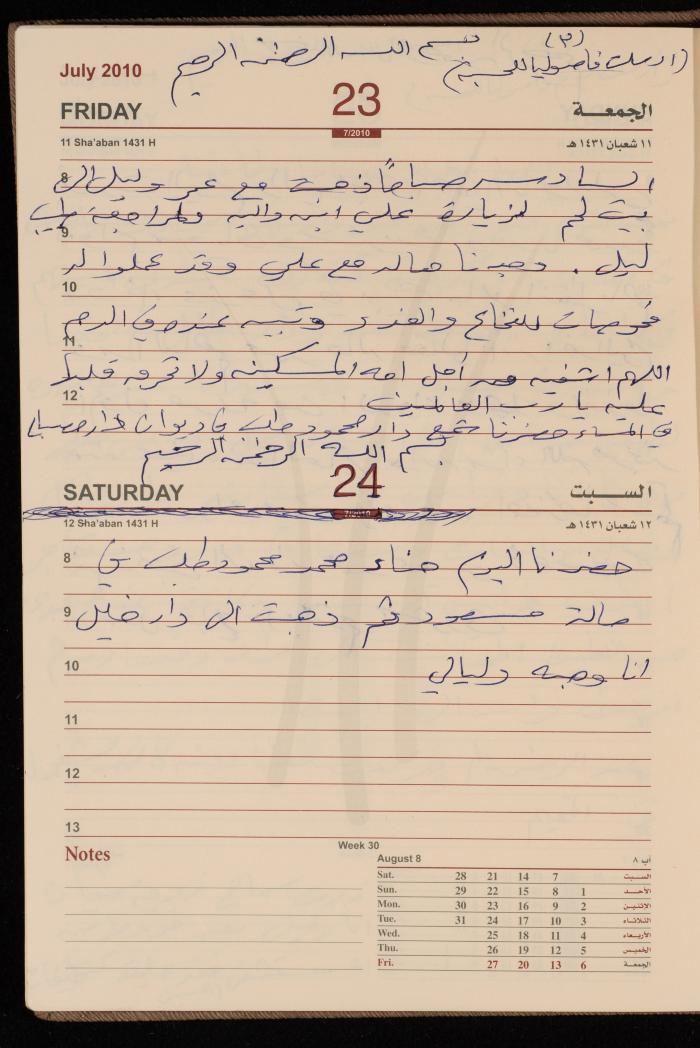 بسم الله الرحمن الرحيم
(ارسلت فاصوليا للحسبة) (٣)
July 2010
23
7/2010
FRIDAY
الجمعـــة
11 Sha'aban 1431 H
١١ شعبان ١٤٣١ هـ
8
السادسه صباحاً ذهبت مع عمر وليل الى
بيت لحم لزيارة علي ابنه واليه ولمراجعة طب
9
ليل . وجدنا حاله مع علي وقد عملوا له
10
فحوصات للنخاع والغدد وتبيه عنده في الدم
11
اللهم اشفيه من أجل امه المسكينه ولا تحرق قلبها
12
عليه يا رب العالمين
في المساء حضرنا دار محمود طلب في ديوان دار
بسم الله الرحمن الرحيم
24
7/2010
SATURDAY
السـبت
12 Sha'aban 1431 H
١٢ شعبان ١٤٣١ هـ
8
حضرنا اليوم حناء محمد محمود طلب في
9
صالة مسعود ثم ذهبت الى دار خليل
10
انا وجبه وليالي
11
12
13
Notes
Week 30
August 8
آب ٨
Sat. 28 21 14 7 السبت
Sun. 29 22 15 8 1 الأحـد
Mon. 30 23 16 9 2 الاثنين
Tue. 31 24 17 10 3 الثلاثاء
Wed. 25 18 11 4 الأربعاء
Thu. 26 19 12 5 الخميس
Fri. 27 20 13 6 الجمعة